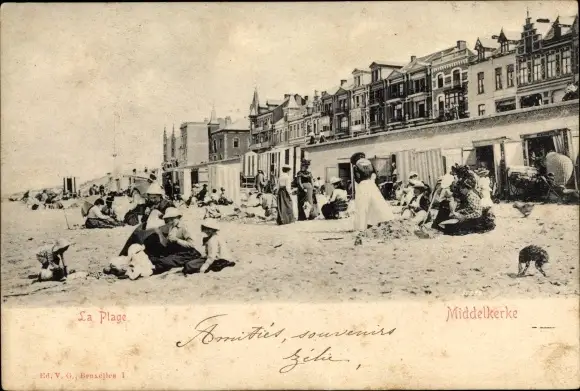 La Plage.
Middelkerke
Amitiés, souvenirs
Zélie
Ed. V. G., Bruxelles 1